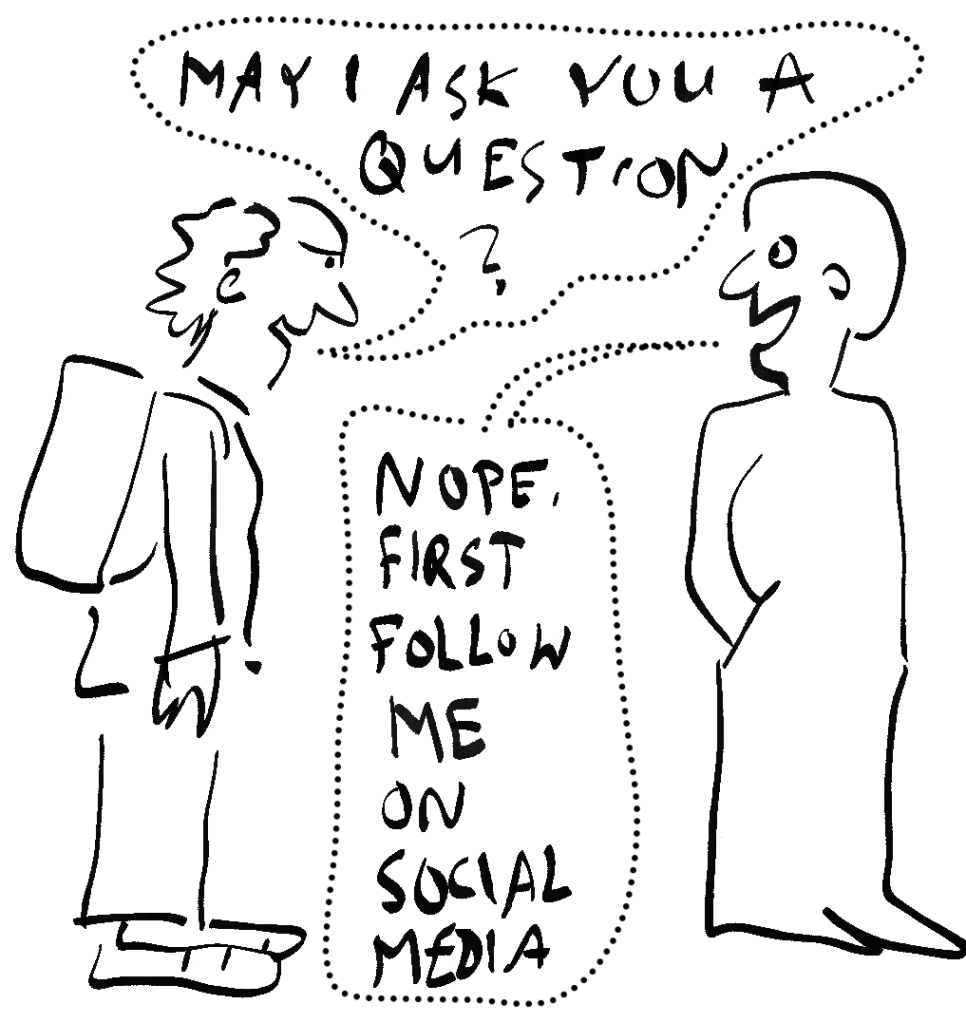 MAY I ASK YOU A
QUESTION
?
NOPE.
FIRST
FOLLOW
ME
ON
SOCIAL
MEDIA